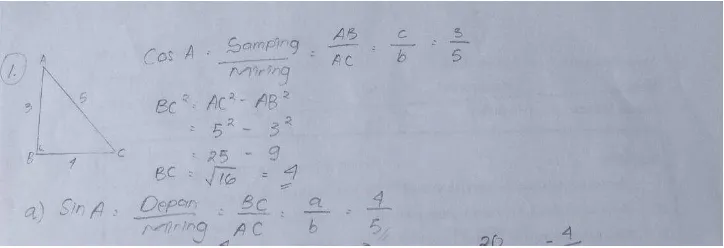 1.
A
3
5
B
4
C
Cos A = Samping/Miring = AB/AC = c/b = 3/5
BC² = AC² - AB²
= 5² - 3²
= 25 - 9
BC = √16 = 4
a) Sin A = Depan/Miring = BC/AC = a/b = 4/5